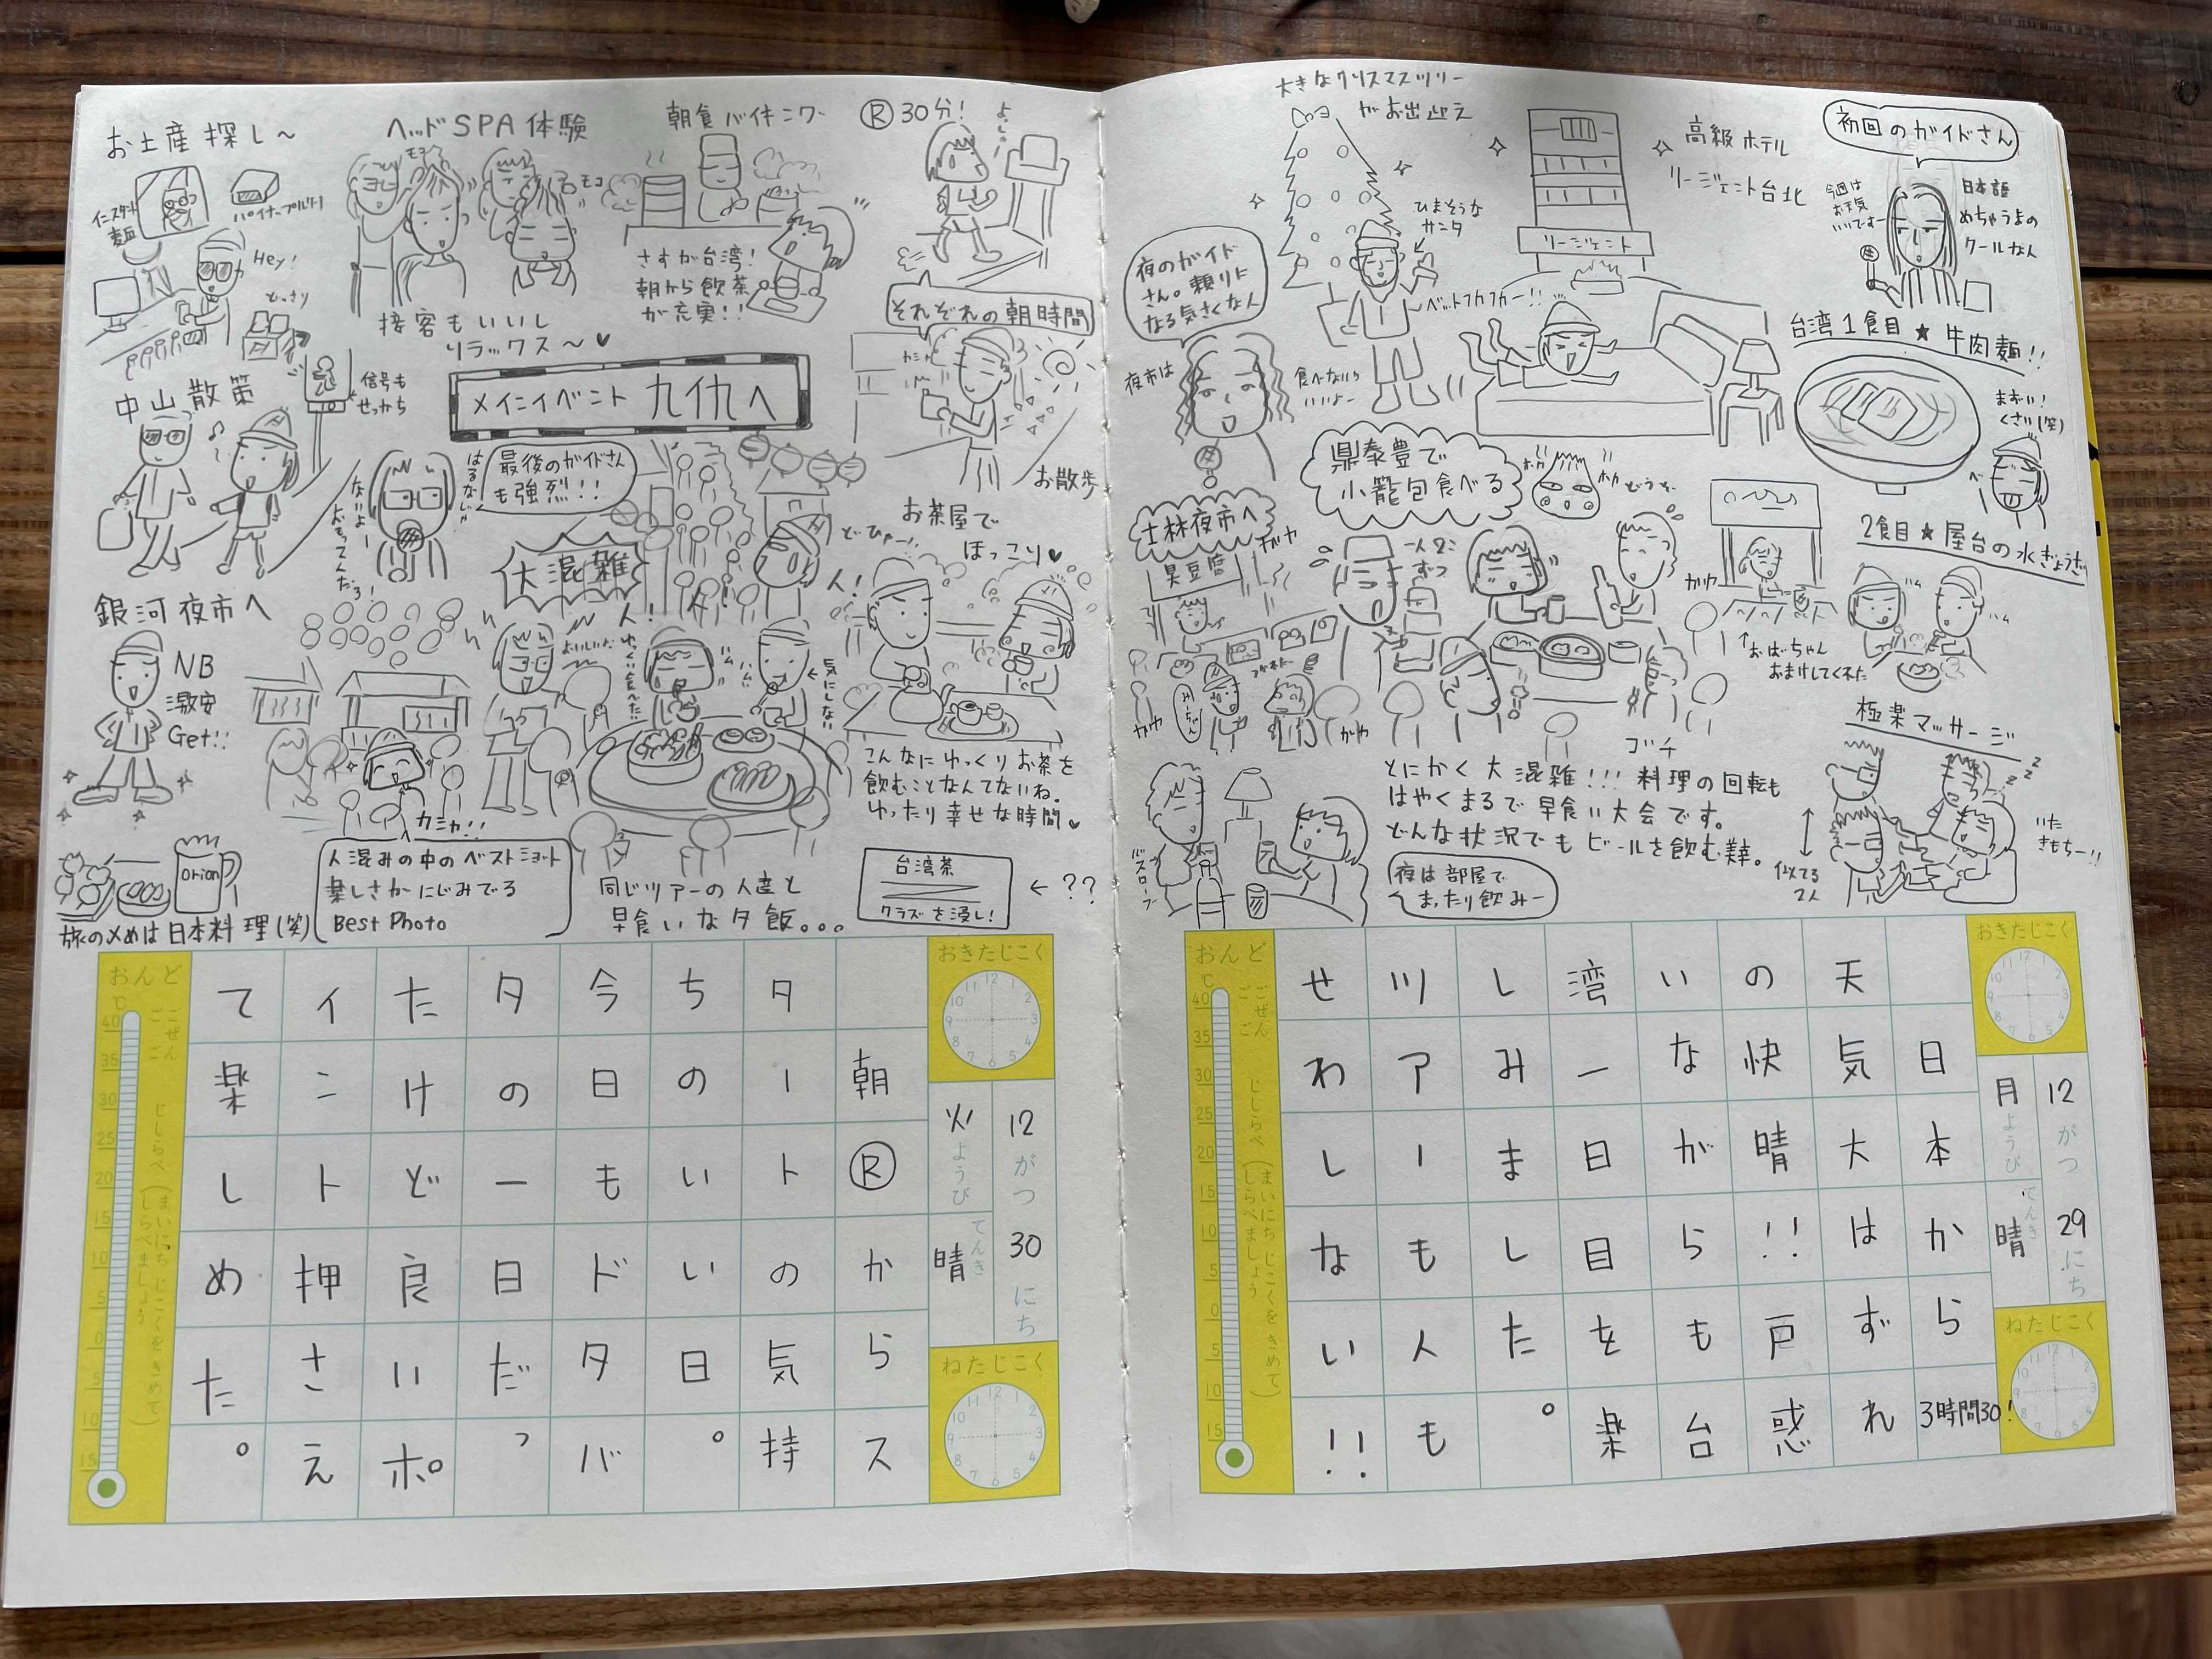 大きなクリスマスツリー
がお出迎え
高級ホテル
リージェント台北
リージェント
初回のガイドさん
今週は
お天気
いいですー
日本語
めちゃうまの
クールなん
ひまそうな
サンタ
夜のガイド
さん。頼りに
なる気さくな人
ベットフカフカー!!
夜市は
食べないら
いいよー
台湾1食目★牛肉麺!!
まずい!
くさい(笑)
鼎泰豊で
小籠包食べる
士林夜市へ
臭豆腐
ガヤ
一人2こ
ずつ
2食目★屋台の水ぎょうざ
おばーちゃん
おまけしてくれた
極楽マッサージ
とにかく大混雑!!!料理の回転も
はやくまるで早食い大会です。
どんな状況でもビールを飲む幸。
夜は部屋で
まったり飲みー
バスローブ
似てる
2人
いた
きもちー!!
12がつ29にち
月ようび
てんき
晴
おきたじこく
ねたじこく
日本から3時間30!
天気大はずれ
の快晴!!戸惑
いながらも台
湾一日目を楽
しみました。
川アーも人も
せわしない!!
おんど
℃
ごぜん
ごご
じ しらべ
(まいにち じこくを きめて
しらべましょう)
お土産探し～
インスタント
麺
パイナップルケーキ
Hey!
どっさり
ヘッドSPA体験
モコ
モコ
接客もいいし
リラックス～♥
朝食バイキング
さすが台湾!
朝から飲茶
が充実!!
Ⓡ30分!
それぞれの朝時間
お散歩
中山散策
信号も
せっかち
メインイベント 九份へ
最後のガイドさん
も強烈!!
大混雑
どひゃー!!
人!
人!
お茶屋で
ほっこり♥
銀河夜市へ
NB
激安
Get!!
ゆっくり食べた!!
気にしない
こんなにゆっくりお茶を
飲むことなんてないね。
ゆったり幸せな時間♥
カシャ!!
人混みの中のベストショット
楽しさがにじみでる
Best Photo
orion
旅の〆めは日本料理(笑)
同じツアーの人達と
早食いな夕飯。。。
台湾茶
クラズを浸し!
←??
12がつ30にち
火ようび
てんき
晴
おきたじこく
ねたじこく
朝Ⓡからス
タートの気持
ちのいい日。
今日もドタバ
タの一日だっ
たけど良いポ
イニト押さえ
て楽しめた。
おんど
℃
ごぜん
ごご
じ しらべ
(まいにち じこくを きめて
しらべましょう)